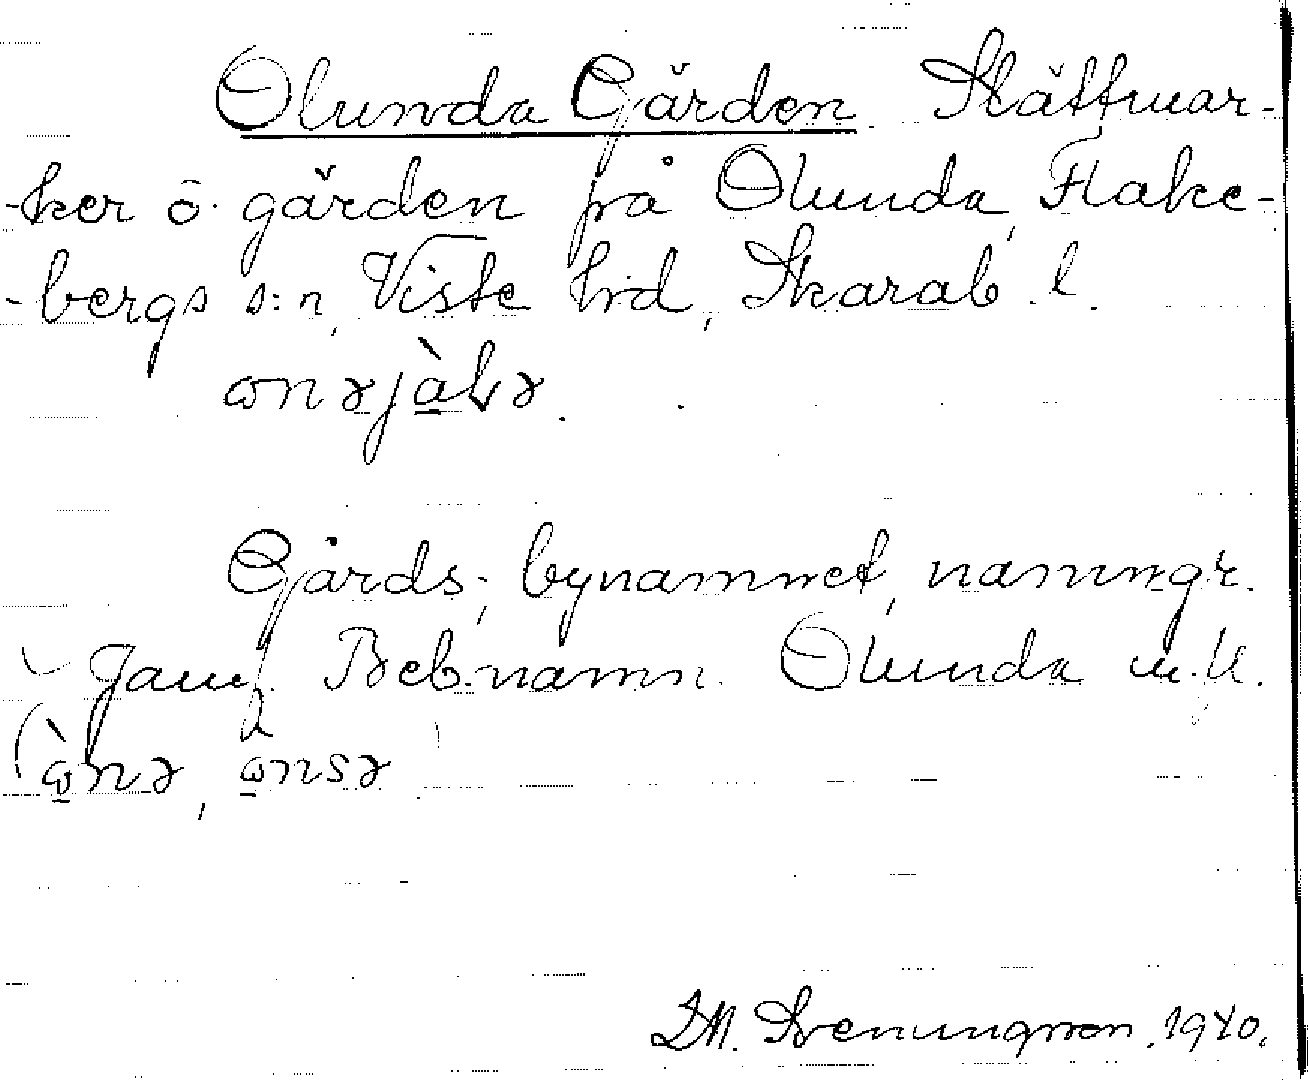 Olunda Gärden. Slättmar-
-ker ö. gärden på Olunda, Flake-
-bergs s:n, Viste hrd, Skarab. l.
ɷnəjàꝉə.
Gärds-, bynamnet, namngr.
Jämf. Beb.namn. Olunda u. U.
(ɷ̀nə, ɷnsə
Svenungsson. 1940.